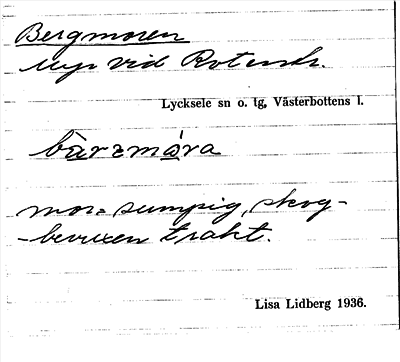 Bergmoren
myr vid Rotensk.
Lycksele sn o. tg, Västerbottens l.
bàrzmåra
mor = sumpig, skog-
-bevuxen trakt.
Lisa Lidberg 1936.